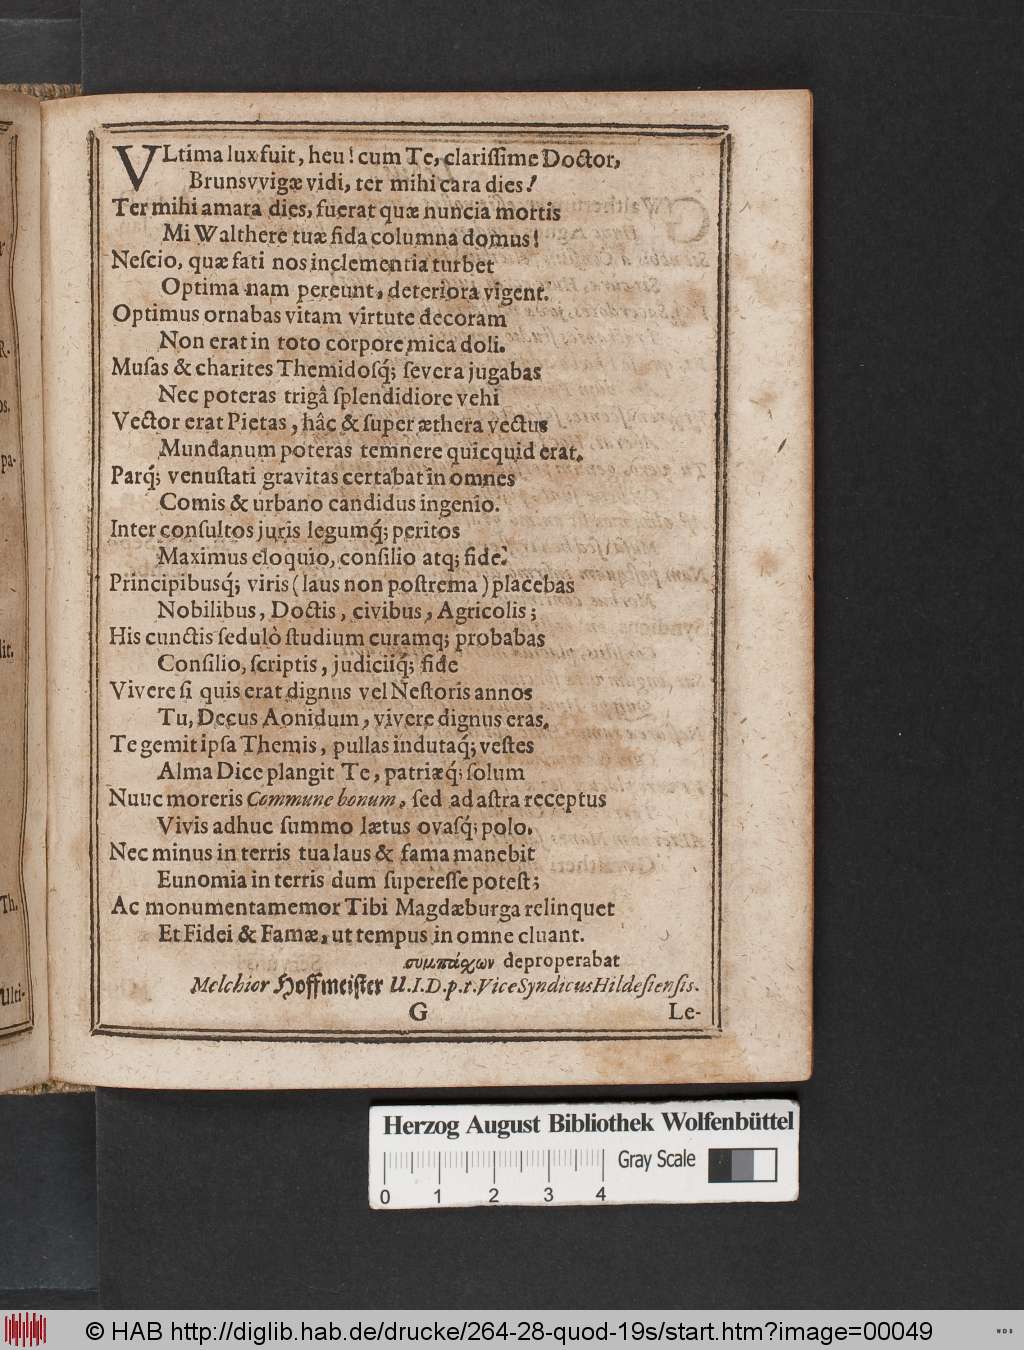 VLtima lux fuit, heu! cum Te, clarissime Doctor,
Brunsvvigæ vidi, ter mihi cara dies!
Ter mihi amara dies, fuerat quæ nuncia mortis
Mi Walthere tuæ fida columna domus!
Nescio, quæ fati nos inclementia turbet
Optima nam pereunt, deteriora vigent.
Optimus ornabas vitam virtute decoram
Non erat in toto corpore mica doli.
Musas & charites Themidosq́; severa jugabas
Nec poteras trigâ splendidiore vehi
Vector erat Pietas, hâc & super æthera vectus
Mundanum poteras temnere quicquid erat.
Parq́; venustati gravitas certabat in omnes
Comis & urbano candidus ingenio.
Inter consultos juris legumq́; peritos
Maximus eloquio, consilio atq; fide.
Principibusq́; viris (laus non postrema) placebas
Nobilibus, Doctis, civibus, Agricolis;
His cunctis sedulò studium curamq; probabas
Consilio, scriptis, judiciiq́; fide
Vivere si quis erat dignus vel Nestoris annos
Tu, Decus Aonidum, vivere dignus eras.
Te gemit ipsa Themis, pullas indutaq́; vestes
Alma Dice plangit Te, patriæq́; solum
Nuuc moreris Commune bonum, sed ad astra receptus
Vivis adhuc summo lætus ovasq́; polo.
Nec minus in terris tua laus & fama manebit
Eunomia in terris dum superesse potest;
Ac monumenta memor Tibi Magdæburga relinquet
Et Fidei & Famæ, ut tempus in omne cluant.
συμπάχων deproperabat
Melchior Hoffmeister U.I.D.p.t.ViceSyndicus Hildesiensis.
G Le-
R.
os.
pa-
lit.
Th.
Ulti-
Herzog August Bibliothek Wolfenbüttel
Gray Scale
0 1 2 3 4
© HAB http://diglib.hab.de/drucke/264-28-quod-19s/start.htm?image=00049